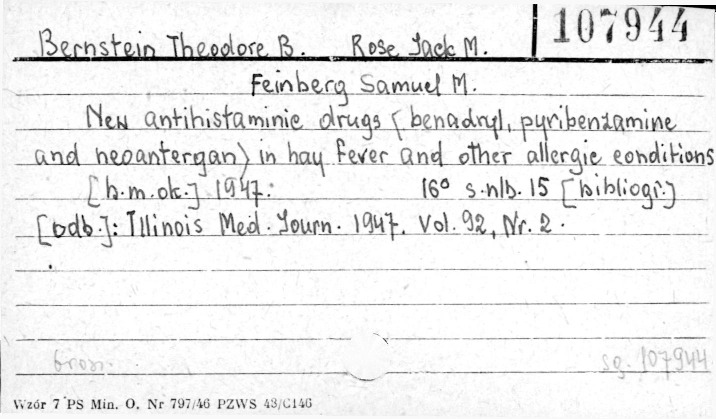 107944
Bernstein Theodore B. Rose Jack M.
Feinberg Samuel M.
New antihistaminic drugs (benadryl, pyribenzamine
and neoantergan) in hay fever and other allergic conditions
[b.m.ok.] 1947. 16° s.nlb. 15 [bibliogr.]
[odb.]: Illinois Med. Journ. 1947. Vol. 92, Nr. 2.
brosz. sg. 107944
Wzór 7 PS Min. O. Nr 797/46 PZWS 43/C146